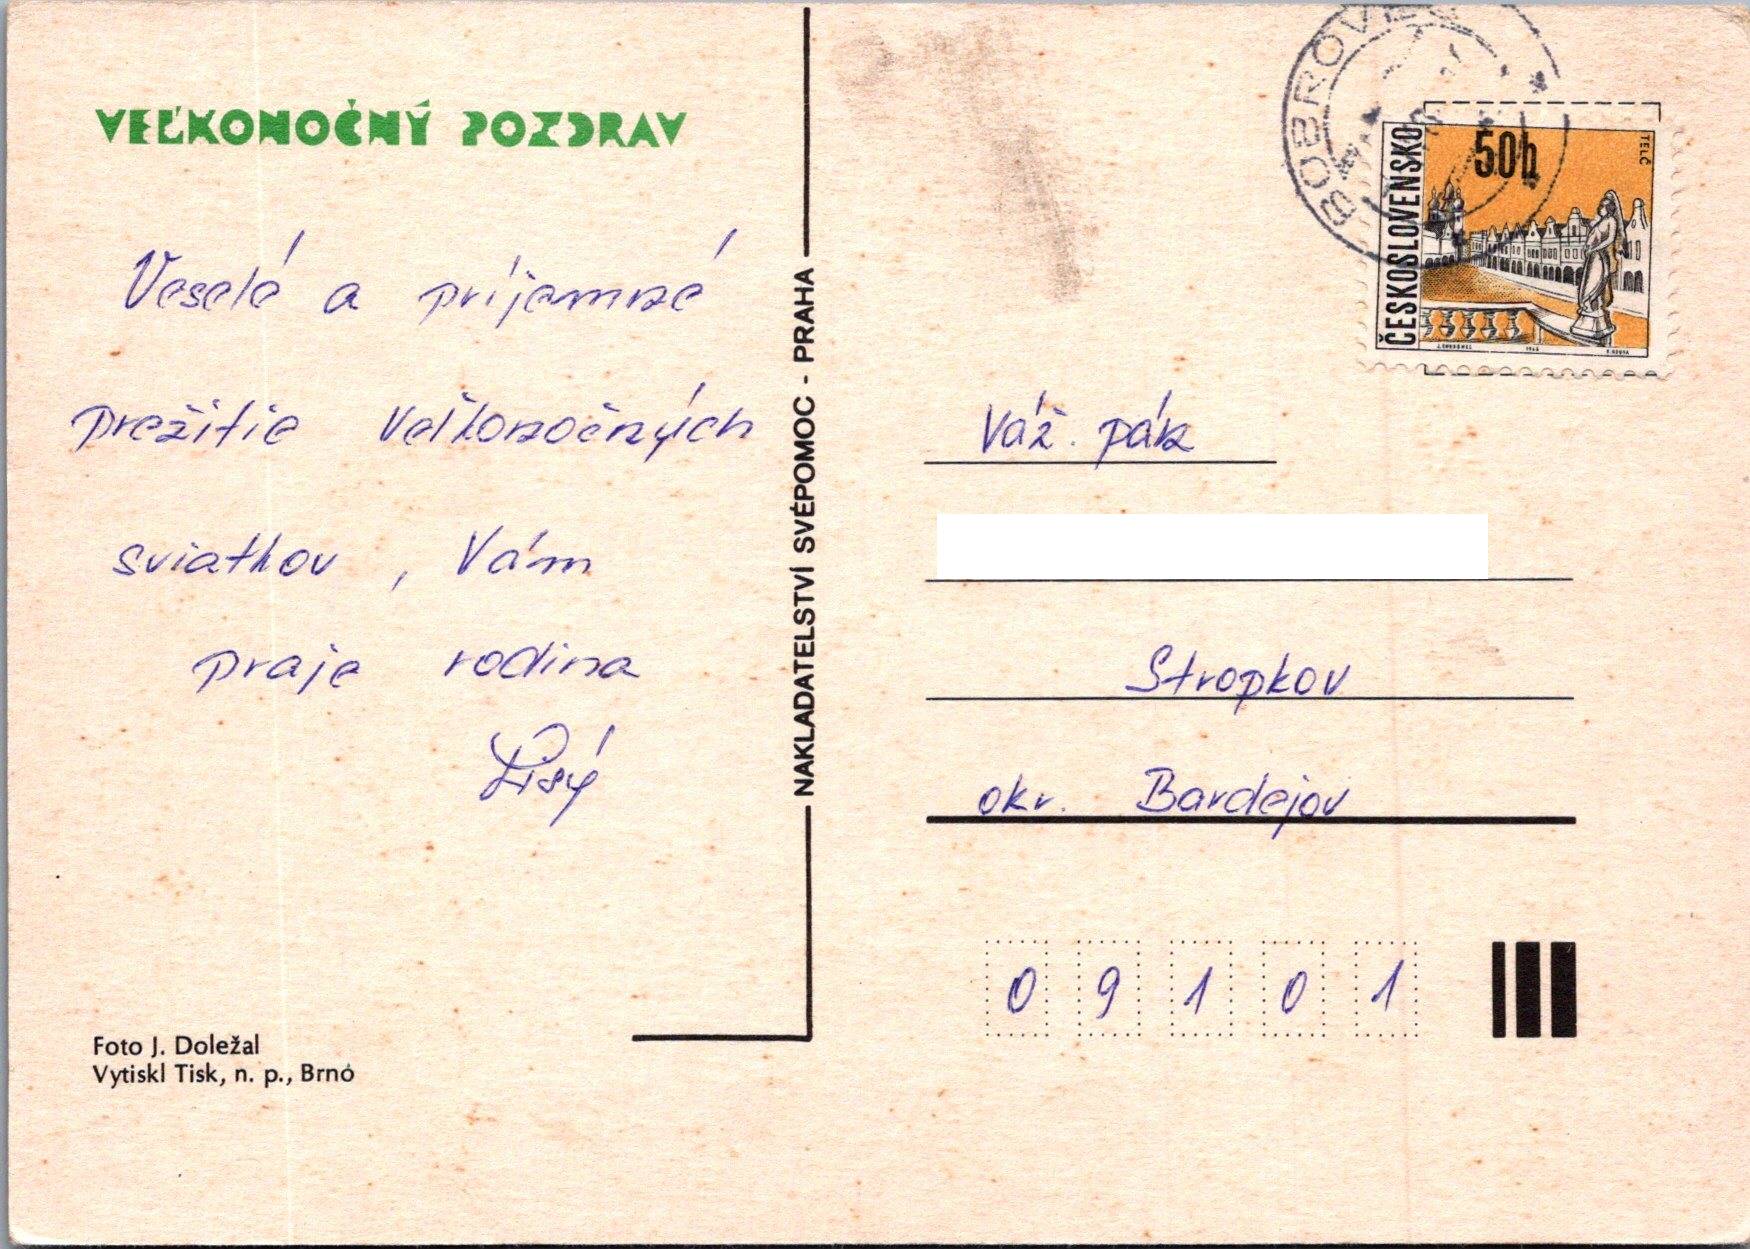 VEĽKONOČNÝ POZDRAV
Veselé a príjemné
prežitie veľkonočných
sviatkov, Vám
praje rodina
Lisý
Foto J. Doležal
Vytiskl Tisk, n. p., Brno
NAKLADATELSTVÍ SVÉPOMOC - PRAHA
BOBROVEC
ČESKOSLOVENSKO
50h
TELČ
Váž. pán
Stropkov
okr. Bardejov
0 9 1 0 1